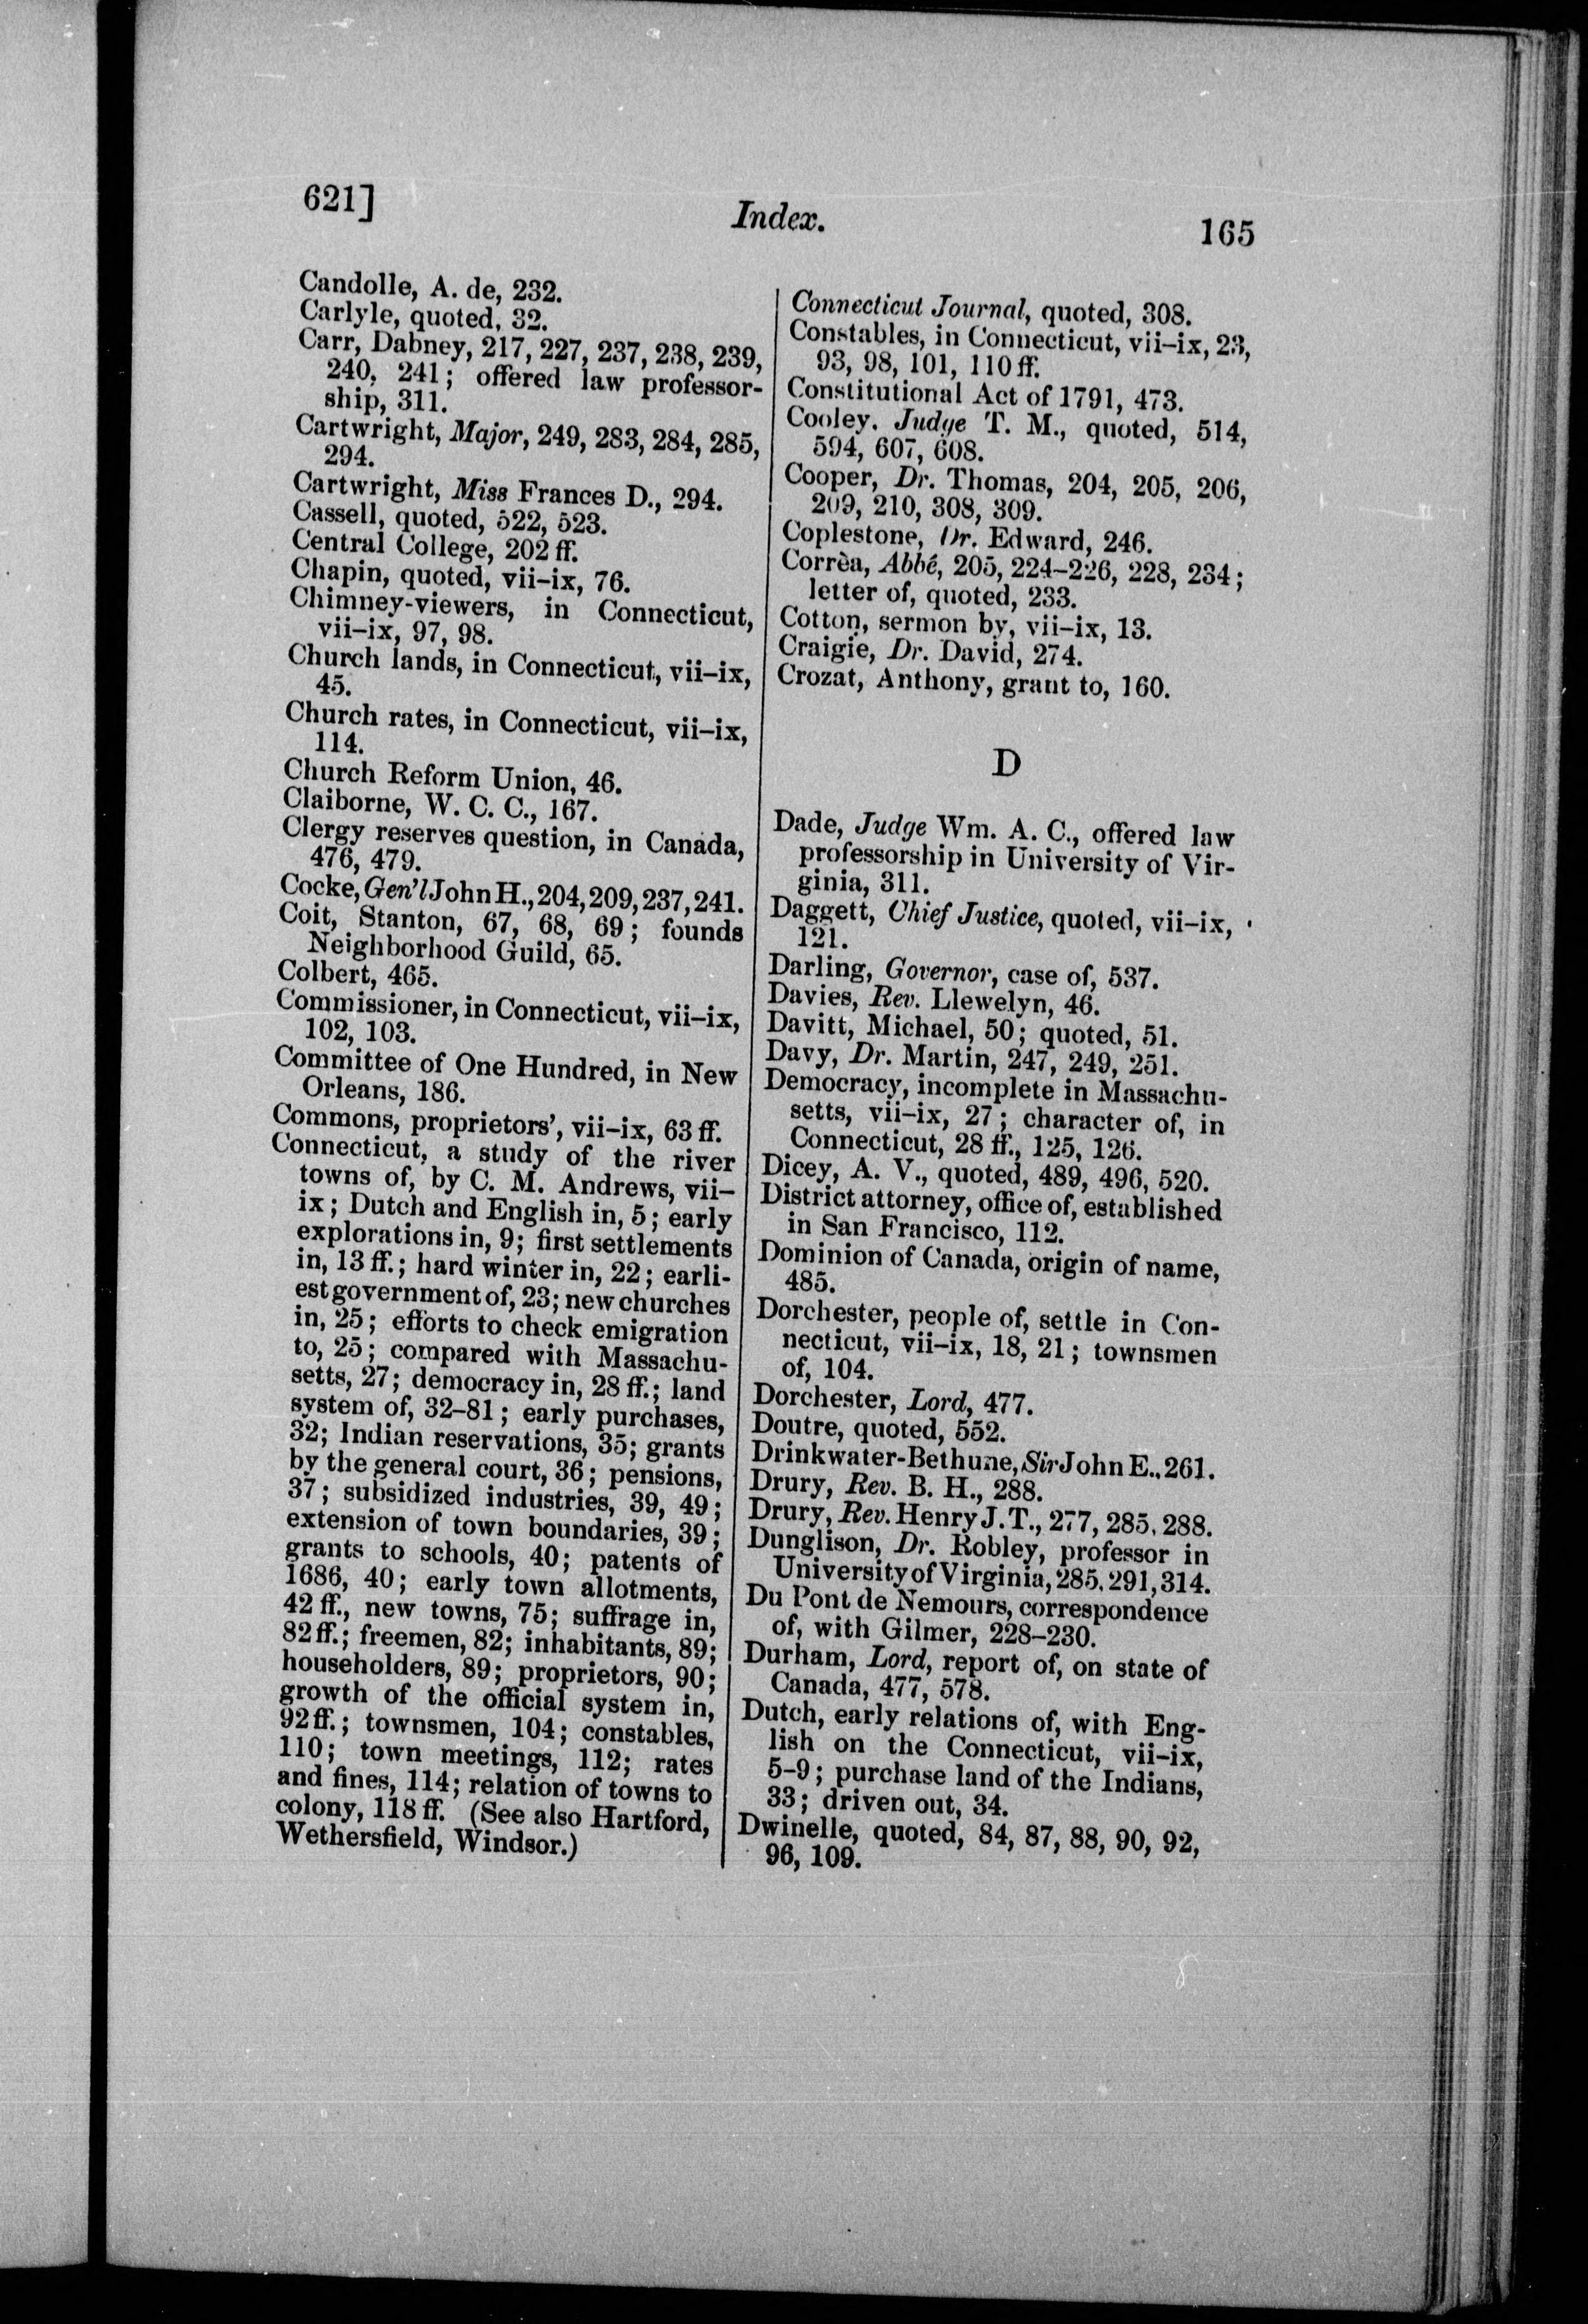 621]
Index.
165
Candolle, A. de, 232.
Carlyle, quoted, 32.
Carr, Dabney, 217, 227, 237, 238, 239,
240, 241; offered law professor-
ship, 311.
Cartwright, Major, 249, 283, 284, 285,
294.
Cartwright, Miss Frances D., 294.
Cassell, quoted, 522, 523.
Central College, 202 ff.
Chapin, quoted, vii-ix, 76.
Chimney-viewers, in Connecticut,
vii-ix, 97, 98.
Church lands, in Connecticut, vii-ix,
45.
Church rates, in Connecticut, vii-ix,
114.
Church Reform Union, 46.
Claiborne, W. C. C., 167.
Clergy reserves question, in Canada,
476, 479.
Cocke, Gen'l John H., 204, 209, 237, 241.
Coit, Stanton, 67, 68, 69; founds
Neighborhood Guild, 65.
Colbert, 465.
Commissioner, in Connecticut, vii-ix,
102, 103.
Committee of One Hundred, in New
Orleans, 186.
Commons, proprietors', vii-ix, 63 ff.
Connecticut, a study of the river
towns of, by C. M. Andrews, vii-
ix; Dutch and English in, 5; early
explorations in, 9; first settlements
in, 13 ff.; hard winter in, 22; earli-
est government of, 23; new churches
in, 25; efforts to check emigration
to, 25; compared with Massachu-
setts, 27; democracy in, 28 ff.; land
system of, 32-81; early purchases,
32; Indian reservations, 35; grants
by the general court, 36; pensions,
37; subsidized industries, 39, 49;
extension of town boundaries, 39;
grants to schools, 40; patents of
1686, 40; early town allotments,
42 ff., new towns, 75; suffrage in,
82 ff.; freemen, 82; inhabitants, 89;
householders, 89; proprietors, 90;
growth of the official system in,
92 ff.; townsmen, 104; constables,
110; town meetings, 112; rates
and fines, 114; relation of towns to
colony, 118 ff. (See also Hartford,
Wethersfield, Windsor.)
Connecticut Journal, quoted, 308.
Constables, in Connecticut, vii-ix, 23,
93, 98, 101, 110 ff.
Constitutional Act of 1791, 473.
Cooley, Judge T. M., quoted, 514,
594, 607, 608.
Cooper, Dr. Thomas, 204, 205, 206,
209, 210, 308, 309.
Coplestone, Dr. Edward, 246.
Corrèa, Abbé, 205, 224-226, 228, 234;
letter of, quoted, 233.
Cotton, sermon by, vii-ix, 13.
Craigie, Dr. David, 274.
Crozat, Anthony, grant to, 160.
D
Dade, Judge Wm. A. C., offered law
professorship in University of Vir-
ginia, 311.
Daggett, Chief Justice, quoted, vii-ix,
121.
Darling, Governor, case of, 537.
Davies, Rev. Llewelyn, 46.
Davitt, Michael, 50; quoted, 51.
Davy, Dr. Martin, 247, 249, 251.
Democracy, incomplete in Massachu-
setts, vii-ix, 27; character of, in
Connecticut, 28 ff., 125, 126.
Dicey, A. V., quoted, 489, 496, 520.
District attorney, office of, established
in San Francisco, 112.
Dominion of Canada, origin of name,
485.
Dorchester, people of, settle in Con-
necticut, vii-ix, 18, 21; townsmen
of, 104.
Dorchester, Lord, 477.
Doutre, quoted, 552.
Drinkwater-Bethune, Sir John E., 261.
Drury, Rev. B. H., 288.
Drury, Rev. Henry J. T., 277, 285, 288.
Dunglison, Dr. Robley, professor in
University of Virginia, 285, 291, 314.
Du Pont de Nemours, correspondence
of, with Gilmer, 228-230.
Durham, Lord, report of, on state of
Canada, 477, 578.
Dutch, early relations of, with Eng-
lish on the Connecticut, vii-ix,
5-9; purchase land of the Indians,
33; driven out, 34.
Dwinelle, quoted, 84, 87, 88, 90, 92,
96, 109.